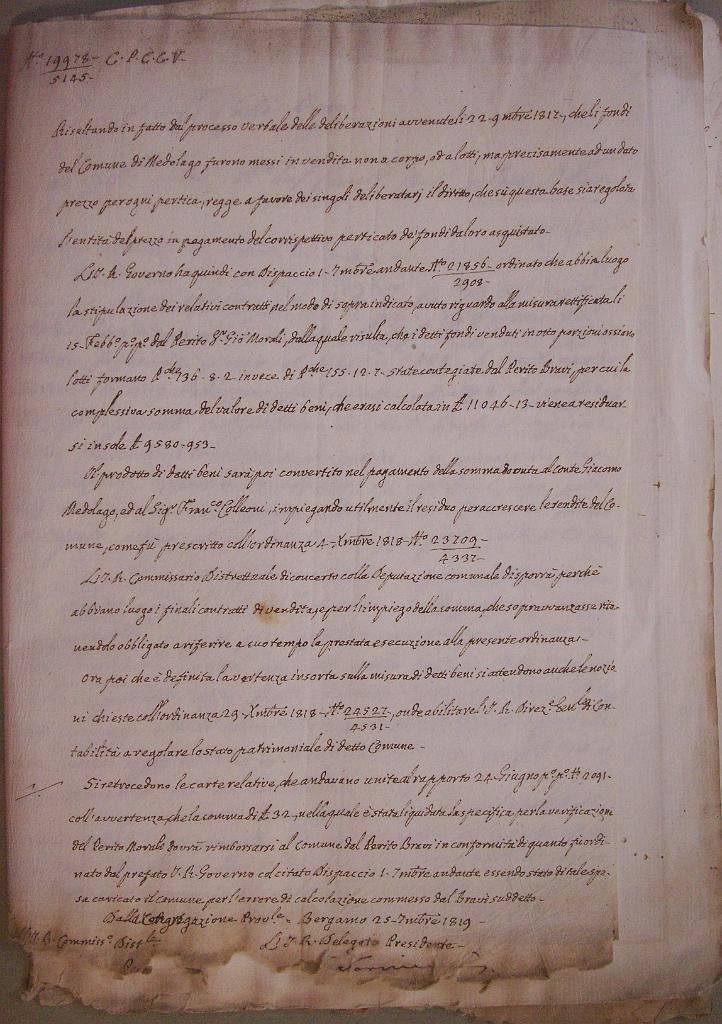 N.º 19978 C. P. C. C. V.
5145
Risultando in fatto dal processo verbale delle deliberazioni avvenute li 22-9mbre 1817, che li fondi
del Comune di Medolago furono messi in vendita non a corpo, od a lotti, ma precisamente ad un dato
prezzo per ogni pertica, regge a favore dei singoli deliberatarj il diritto, che su questa base sia regolata
l'entità del prezzo in pagamento del corrispettivo perticato de' fondi da loro acquistato
L'I. R. Governo ha quindi con Dispaccio 1-7mbre andante N.º 21856 ordinato che abbia luogo
2908
la stipulazione dei relativi contratti nel modo di sopra indicato, avuto riguardo alla misura rettificata li
15-Febb.º p.º p.º dal Perito Gio Morali, dalla quale risulta, che i detti fondi venduti in otto porzioni ossiano
lotti formano P.che 136-8-2 invece di P.che 155-12-7 state conteggiate dal Perito Bravi, per cui la
complessiva somma del valore di detti beni, che erasi calcolata in £ 11046-13 viene a residuar
si in sole £ 9580-953-
Il prodotto di datti beni sarà poi convertito nel pagamento della somma dovuta al Conte Giacomo
Medolago, ed al Sig.r Fran.co Colleoni, impiegando utilmente il residuo per accrescere le rendite del Co-
mune, come fu prescritto coll'ordinanza 4-Xmbre 1818-N.º 23709
4337
L'I. R. Commissario Distrettuale di concerto colla Deputazione comunale disporrà, perchè
abbiano luogo i finali contratti di vendita, e per l'impiego della somma, che sopravvanzasse rite-
nendolo obbligato a riferire a suo tempo la prestata esecuzione alla presente ordinanza
Ora poi che è definita la vertenza insorta sulla misura di detti beni si attendono anche le nozio
ni chieste coll'ordinanza 29-Xmbre 1818-N.º 24527, onde abilitare l'I. R. Direz.e Gen.le di Con-
4531
tabilità a regolare lo stato patrimoniale di detto Comune-
Si retrocedono le carte relative, che andavano unite al rapporto 24-Giugno p.º p.º N.º 2091-
coll'avvertenza, che la somma di £ 32, nella quale è stata liquidata la specifica per la verificazione
del Perito Morali dovrà rimborsarsi al Comune dal Perito Bravi in conformità di quanto fu ordi-
nato dal prefato I. R. Governo col citato Dispaccio 1-7mbre andante essendo stato di tale spe-
sa caricato il Comune per l'errore di calcolazione commesso dal Bravi suddetto-
Dalla Congregazione Prov.le Bergamo 25-7mbre 1819-
All'I. R. Commiss.º Dist.le L'I. R. Delegato Presidente-